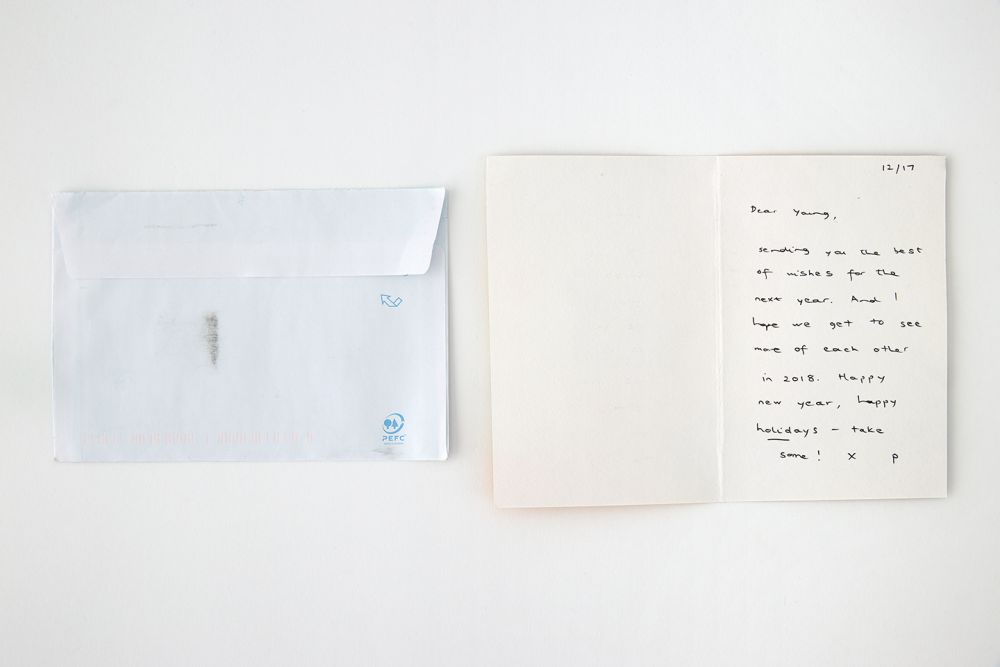 PEFC
12/17
Dear Young,
sending you the best
of wishes for the
next year. And I
hope we get to see
more of each other
in 2018. Happy
new year, happy
holidays – take
some! x p